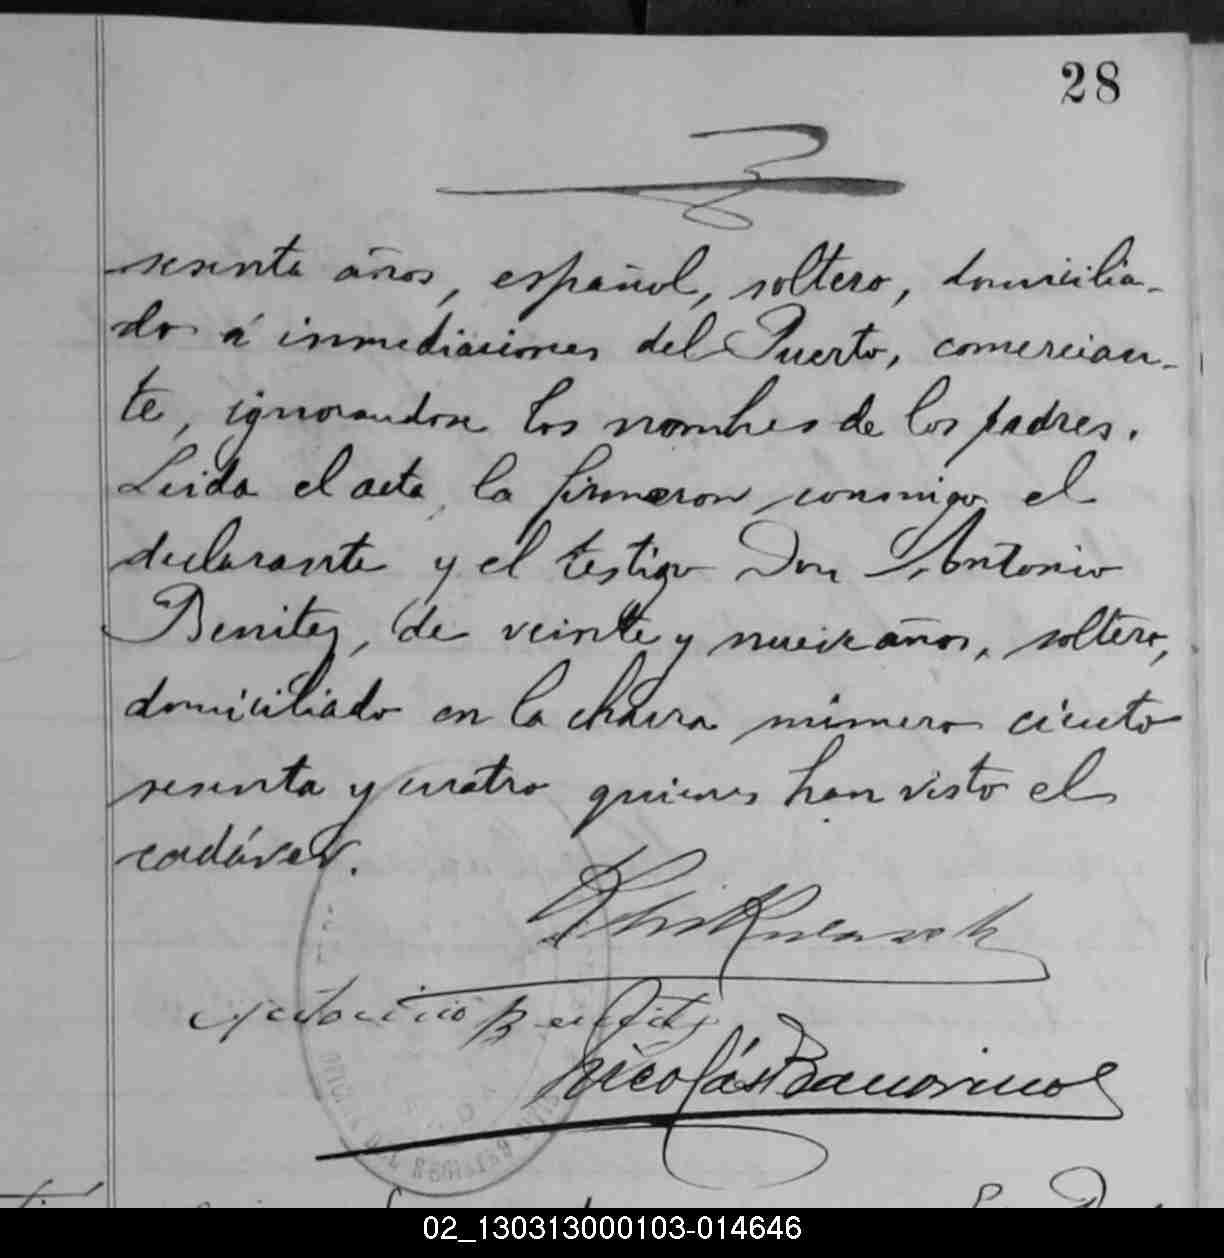 28
sesenta años, español, soltero, domicilia-
do á inmediaciones del Puerto, comercian-
te, ignorandose los nombres de los padres.
Leida el acta, la firmaron conmigo el
declarante y el testigo Don Antonio
Benitez, de veinte y nueve años, soltero,
domiciliado en la chacra número ciento
sesenta y cuatro quienes han visto el
cadáver.
Benitez
Nicolás
02_130313000103-014646